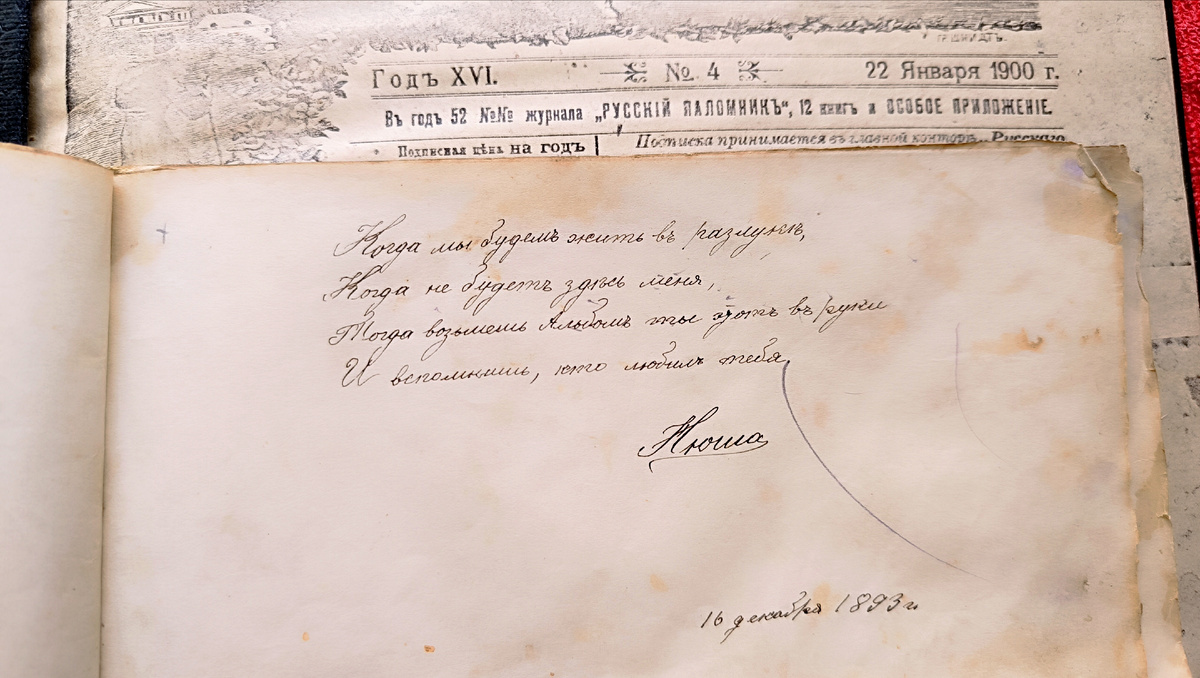 Годъ XVI.
№ 4
22 Января 1900 г.
Въ годъ 52 №№ журнала „РУССКІЙ ПАЛОМНИКЪ“, 12 книгъ и ОСОБОЕ ПРИЛОЖЕНІЕ.
Подписная цѣна на годъ
Подписка принимается въ главной конторѣ „Русскаго
Когда мы будемъ жить въ разлукѣ,
Когда не будетъ здѣсь меня,
Тогда возьмешь Альбомъ ты этотъ въ руки
И вспомнишь, кто любилъ тебя
Нюша
16 декабря 1893 г.